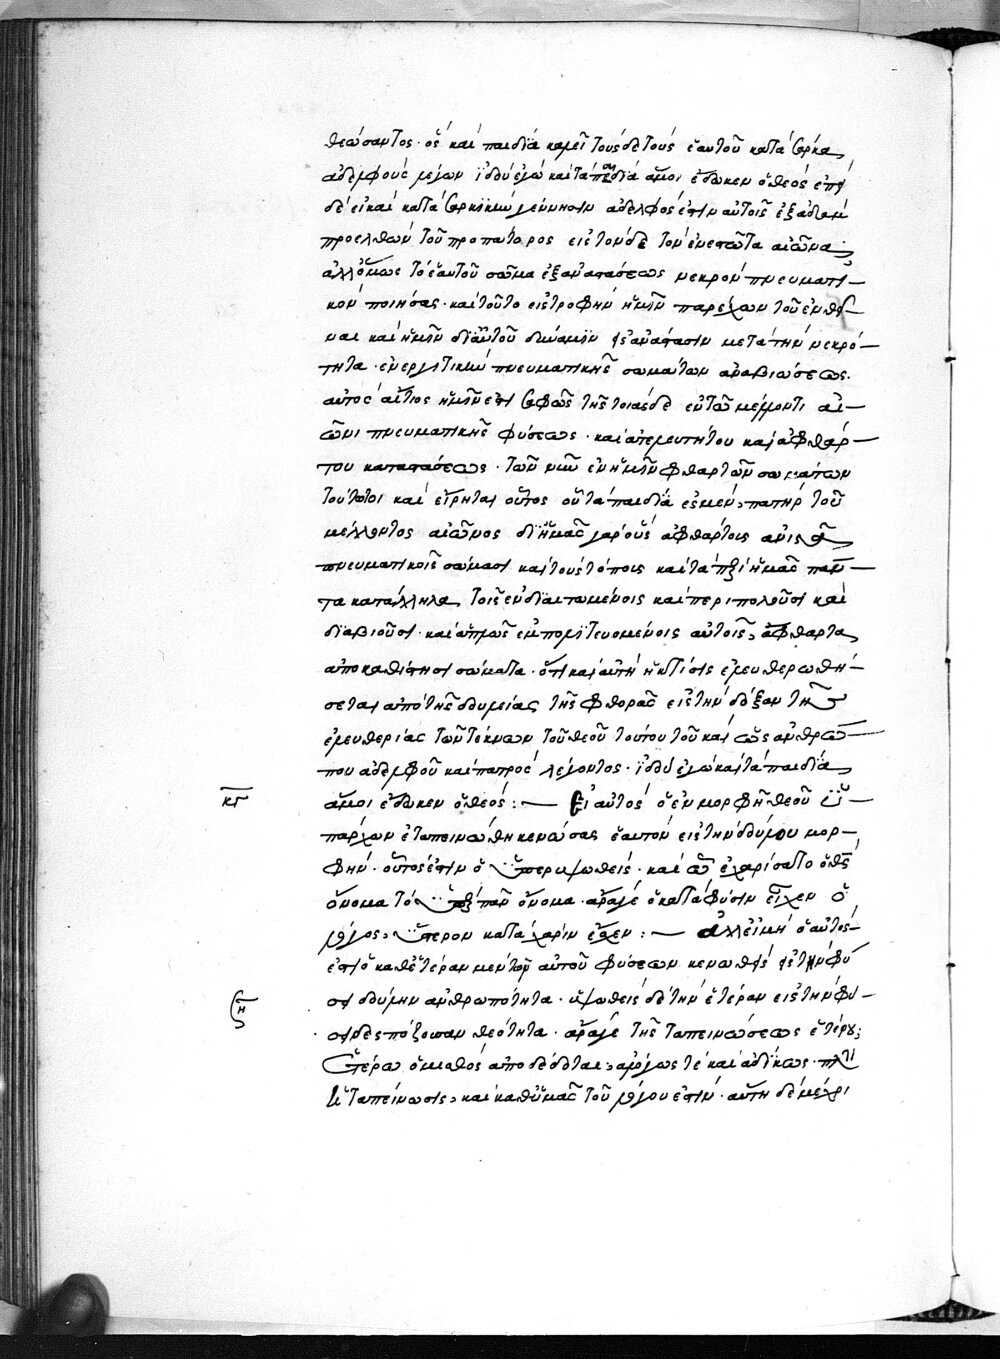 θεώσαντος· ὃς καὶ παιδία καλεῖ τοὺς δὲ τοὺς ἑαυτοῦ κατὰ σάρκα
ἀδελφοὺς λέγων ἰδοὺ ἐγὼ καὶ τὰ παιδία ἅ μοι ἔδωκεν ὁ θεός· ἐπεὶ
δὲ εἰ καὶ κατὰ σαρκικὴν γέννησιν ἀδελφός ἐστιν αὐτοῖς ἐξ ἀδὰμ
προελθὼν τοῦ προπάτορος εἰς τόνδε τὸν ἐνεστῶτα αἰῶνα·
ἀλλ' ὅμως τὸ ἑαυτοῦ σῶμα ἐξ ἀναστάσεως νεκρῶν πνευματι–
κὸν ποιήσας· καὶ τοῦτο εἰς τροφὴν ἡμῖν παρέχων τοῦ
ναι καὶ ἡμῖν δι' αὐτοῦ δύναμιν ἐξαναστάσιν μετὰ τὴν νεκρό–
τητα· ἐνεργητικὴν πνευματικῆς σωμάτων ἀναβιώσεως·
αὐτὸς αἴτιος ἡμῖν ἐστι σαφῶς τῆς τοιᾶσδε ἐν τῷ μέλλοντι αἰ–
ῶνι πνευματικῆς φύσεως· καὶ ἀτελευτήτου καὶ ἀφθάρ–
του καταστάσεως· τῶν νῦν ἐν ἡμῖν φθαρτῶν σωμάτων
τούτοι καὶ εἴρηται οὗτος οὗ τὰ παιδία ἐσμέν, πατὴρ τοῦ
μέλλοντος αἰῶνος δι' ἡμᾶς γὰρ οὓς ἀφθάρτοις ἀνιστᾷ
πνευματικοῖς σώμασι καὶ τοὺς τόπους καὶ τὰ περὶ ἡμᾶς πάν–
τα κατάλληλα τοῖς ἐνδιαιτωμένοις καὶ περιπολοῦσι καὶ
διαβιοῦσι· καὶ ἁπλῶς ἐμπολιτευομένοις αὐτοῖς, ἄφθαρτα
ἀποκαθίστησι σώματα· ὅτι καὶ αὐτὴ ἡ κτίσις ἐλευθερωθή–
σεται ἀπὸ τῆς δουλείας τῆς φθορᾶς εἰς τὴν δόξαν τῆς
ἐλευθερίας τῶν τέκνων τοῦ θεοῦ τούτου τοῦ καὶ ὡς ἀνθρώ–
που ἀδελφοῦ καὶ πατρὸς λέγοντος· ἰδοὺ ἐγὼ καὶ τὰ παιδία
κγ ἅ μοι ἔδωκεν ὁ θεός :— Εἰ αὐτὸς ὁ ἐν μορφῇ θεοῦ ὑ–
πάρχων ἐταπεινώθη κενώσας ἑαυτὸν εἰς τὴν δούλου μορ–
φήν· οὗτός ἐστιν ὁ ὑπερυψωθείς· καὶ ᾧ ἐχαρίσατο ὁ θς
ὄνομα τὸ ὑπὲρ πᾶν ὄνομα· ἆρά γε ὃ κατὰ φύσιν εἶχεν ὁ
λόγος, ὕστερον κατὰ χάριν ἔσχεν :— ἀλλ' εἰ μὴ ὁ αὐτός
ἐστι ὁ καθ' ἑτέραν μὲν τῶν αὐτοῦ φύσεων κενωθεὶς εἰς τὴν φύ
σι δούλην ἀνθρωπότητα· ὑψωθεὶς δὲ τὴν ἑτέραν εἰς τὴν φύ–
ση δεσπόζουσαν θεότητα· ἆρά γε τῆς ταπεινώσεως ἑτέρου;
ἑτέρῳ ὁ μισθὸς ἀποδέδοται, ἀλόγως τὲ καὶ ἀδίκως· πλὴν
ἡ ταπείνωσις, καὶ καθ' ὑμᾶς τοῦ λόγου ἐστίν· αὕτη δὲ μέχρι